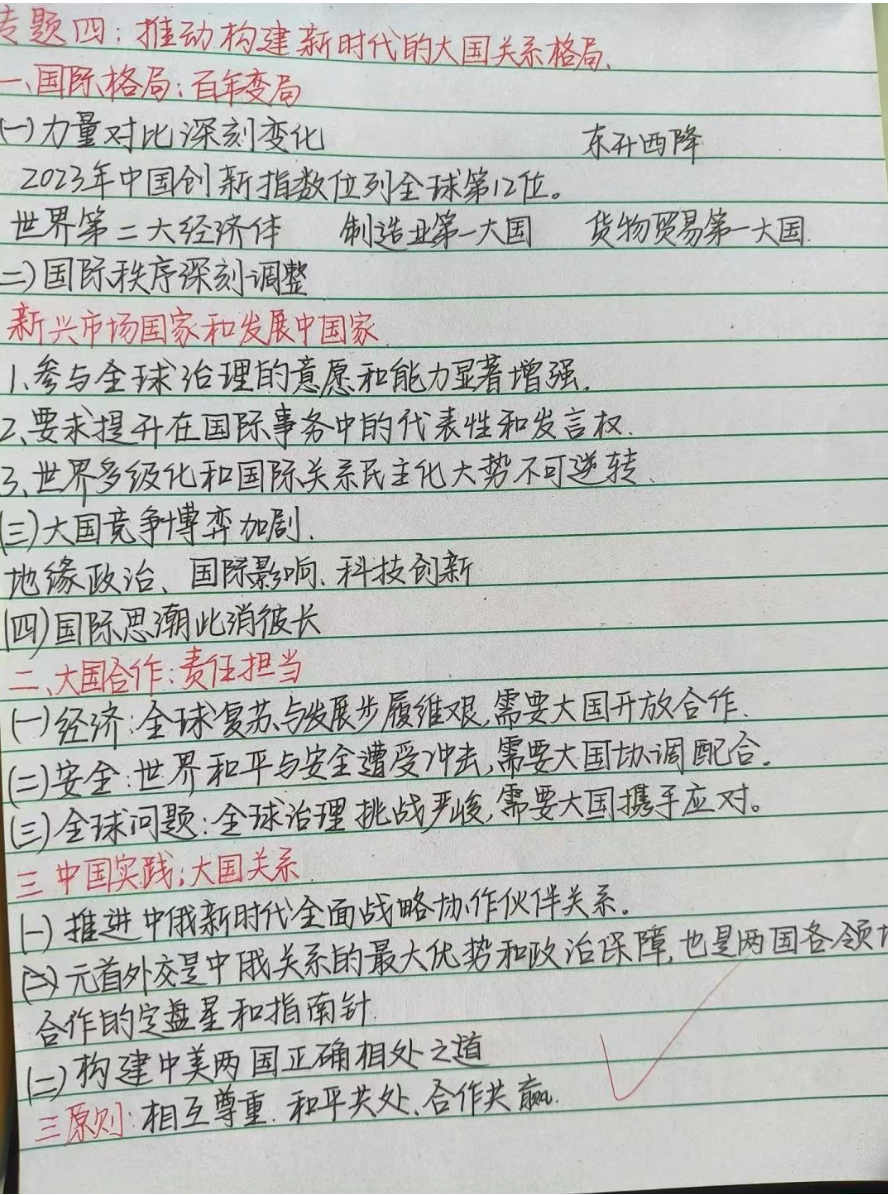 专题四：推动构建新时代的大国关系格局.
一、国际格局：百年变局
(一)力量对比深刻变化 东升西降
2023年中国创新指数位列全球第12位。
世界第二大经济体 制造业第一大国 货物贸易第一大国.
二)国际秩序深刻调整
新兴市场国家和发展中国家
1、参与全球治理的意愿和能力显著增强.
2、要求提升在国际事务中的代表性和发言权.
3、世界多级化和国际关系民主化大势不可逆转.
(三)大国竞争博弈加剧.
地缘政治、国际影响、科技创新
(四)国际思潮此消彼长
二、大国合作：责任担当
(一)经济：全球复苏与发展步履维艰,需要大国开放合作.
(二)安全：世界和平与安全遭受冲击,需要大国协调配合。
(三)全球问题：全球治理挑战严峻,需要大国携手应对。
三 中国实践：大国关系
(一)推进中俄新时代全面战略协作伙伴关系。
元首外交是中俄关系的最大优势和政治保障,也是两国各领
合作的定盘星和指南针
(二)构建中美两国正确相处之道
三原则：相互尊重.和平共处、合作共赢.